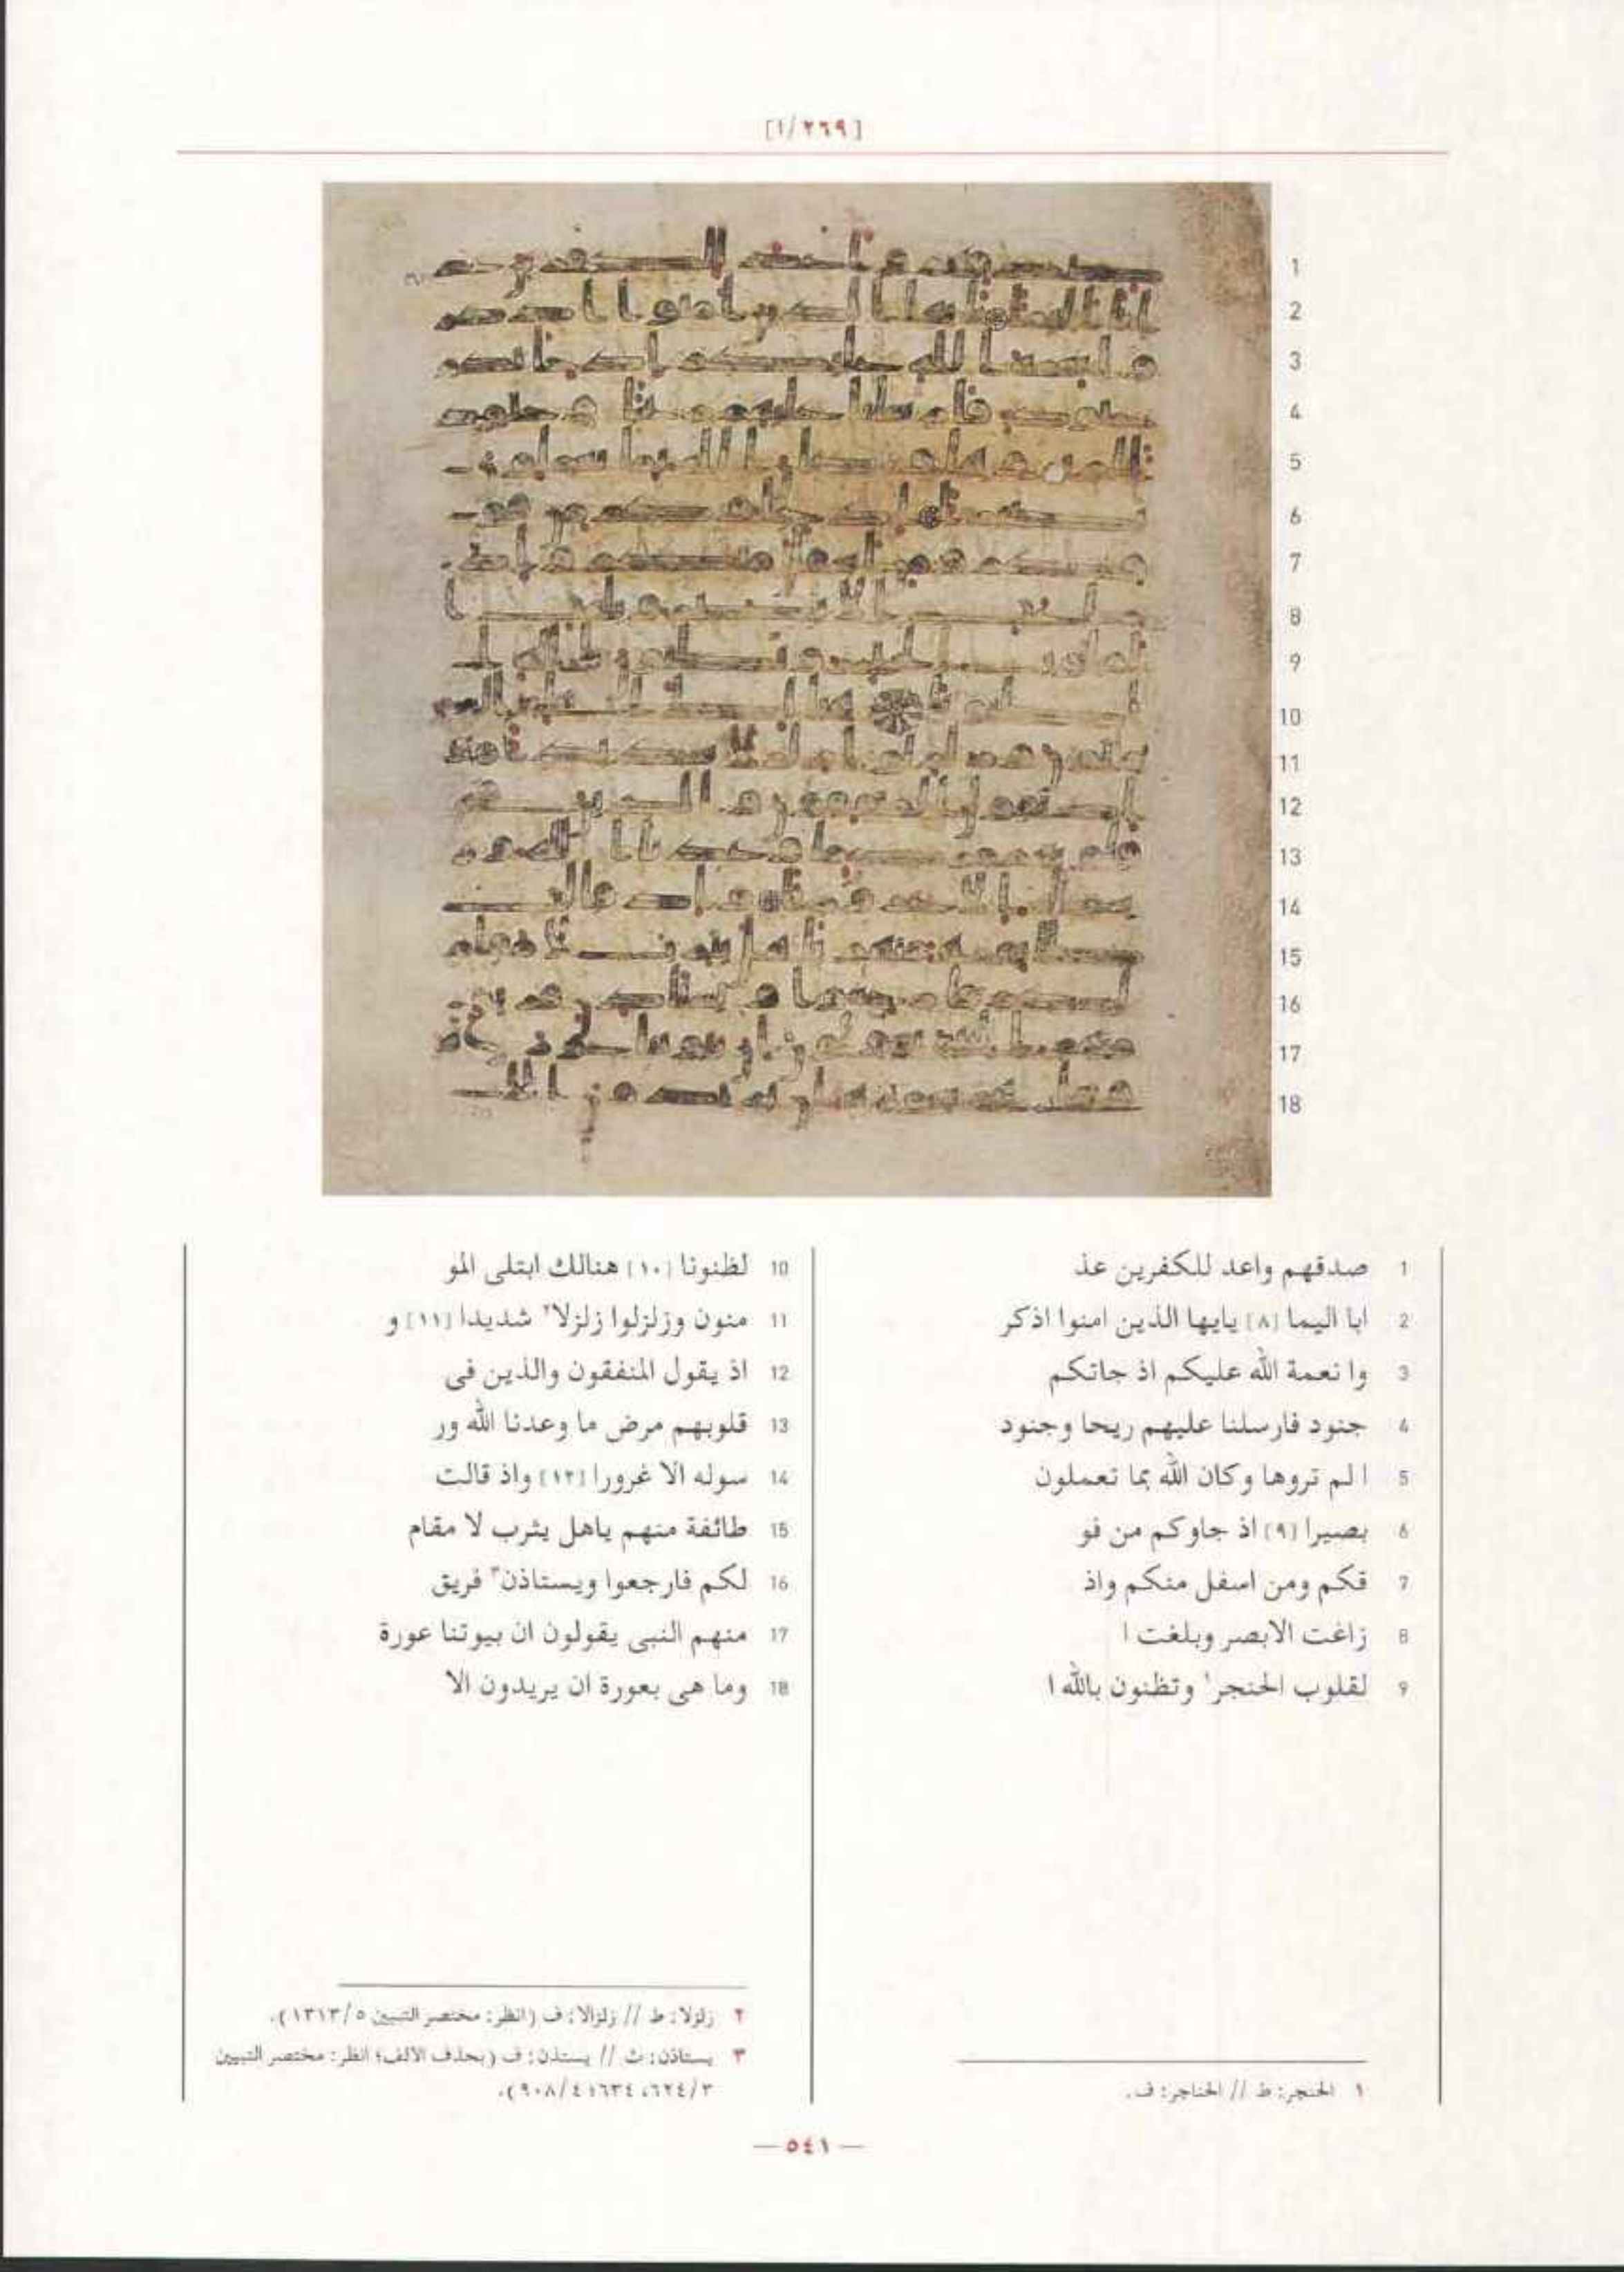 [٢٦٩/١]
1 صدقهم واعد للكفرين عذ
2 ابا اليما [٨] يايها الذين امنوا اذكر
3 وا نعمة الله عليكم اذ جاتكم
4 جنود فارسلنا عليهم ريحا وجنود
5 ا لم تروها وكان الله بما تعملون
6 بصيرا [٩] اذ جاوكم من فو
7 قكم ومن اسفل منكم واذ
8 زاغت الابصر وبلغت ا
9 لقلوب الحنجر١ وتظنون بالله ا
10 لظنونا [١٠] هنالك ابتلى المو
11 منون وزلزلوا زلزلا٢ شديدا [١١] و
12 اذ يقول المنفقون والذين فى
13 قلوبهم مرض ما وعدنا الله ور
14 سوله الا غرورا [١٢] واذ قالت
15 طائفة منهم ياهل يثرب لا مقام
16 لكم فارجعوا ويستاذن٣ فريق
17 منهم النبى يقولون ان بيوتنا عورة
18 وما هى بعورة ان يريدون الا
١ الحنجر: ط // الحناجر: ف.
٢ زلزلا: ط // زلزالا: ف (انظر: مختصر التبيين ١٣١٣/٥).
٣ يستاذن: ث // يستذن: ف (بحذف الالف؛ انظر: مختصر التبيين
٦٢٤/٣، ٦٣٤؛ ٩٠٨/٤).
— ٥٤١ —